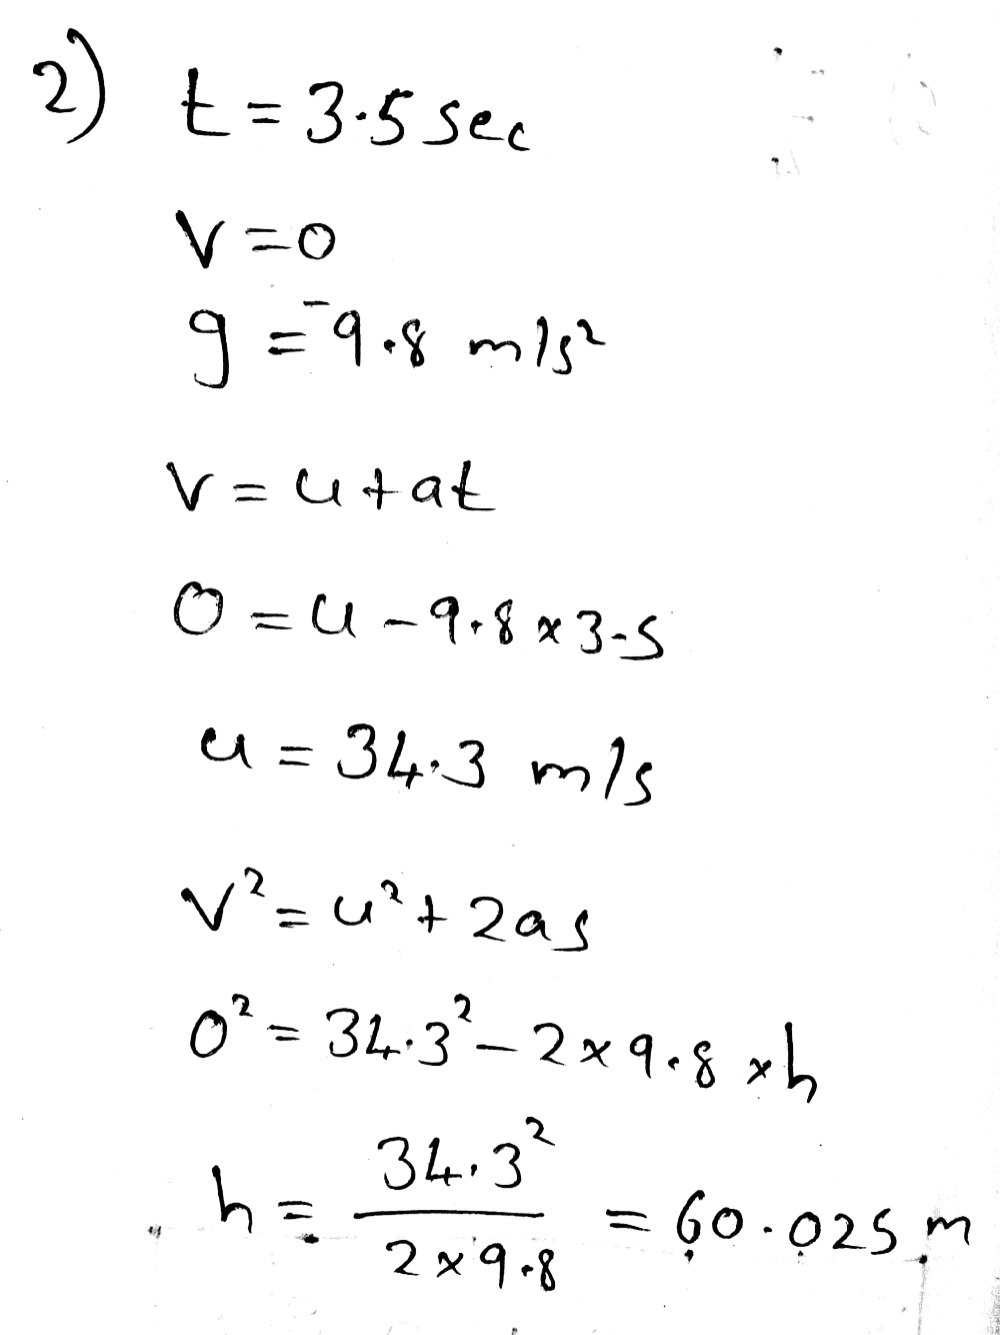 2) t = 3.5 sec
v = 0
g = -9.8 m/s²
v = u + at
0 = u - 9.8 x 3.5
u = 34.3 m/s
v² = u² + 2as
0² = 34.3² - 2 x 9.8 x h
h = 34.3² / 2 x 9.8 = 60.025 m